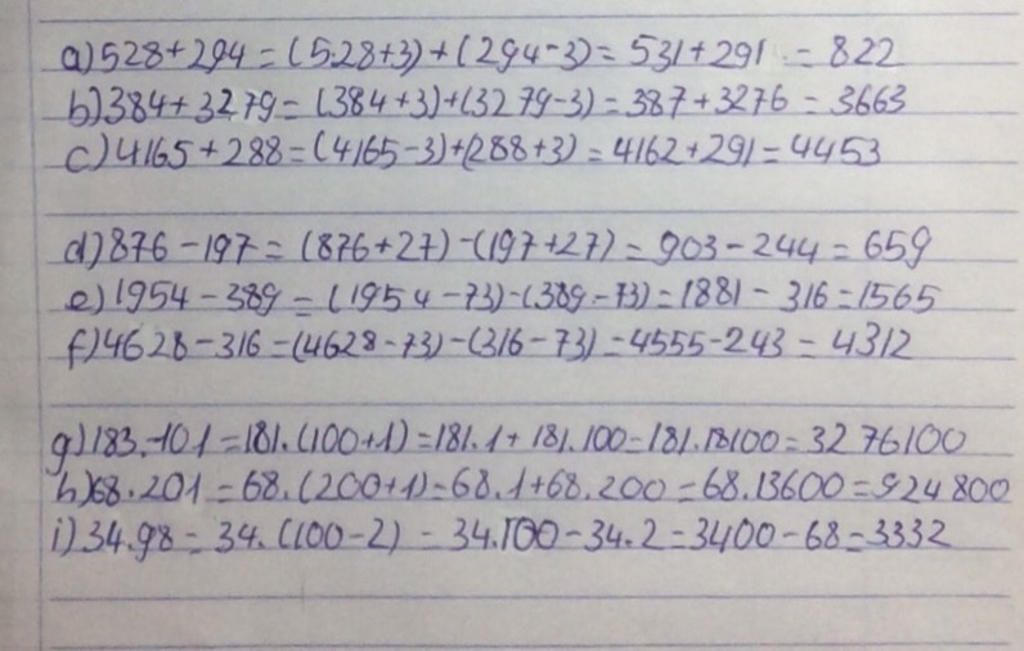 a) 528+294 = (528+3)+(294-3) = 531+291 = 822
b) 384+3279 = (384+3)+(3279-3) = 387+3276 = 3663
c) 4165+288 = (4165-3)+(288+3) = 4162+291 = 4453
d) 876-197 = (876+27)-(197+27) = 903-244 = 659
e) 1954-389 = (1954-73)-(389-73) = 1881-316 = 1565
f) 4628-316 = (4628-73)-(316-73) = 4555-243 = 4312
g) 183.101 = 181.(100+1) = 181.1+181.100 = 181.18100 = 3276100
h) 68.201 = 68.(200+1) = 68.1+68.200 = 68.13600 = 924800
i) 34.98 = 34.(100-2) = 34.100-34.2 = 3400-68 = 3332